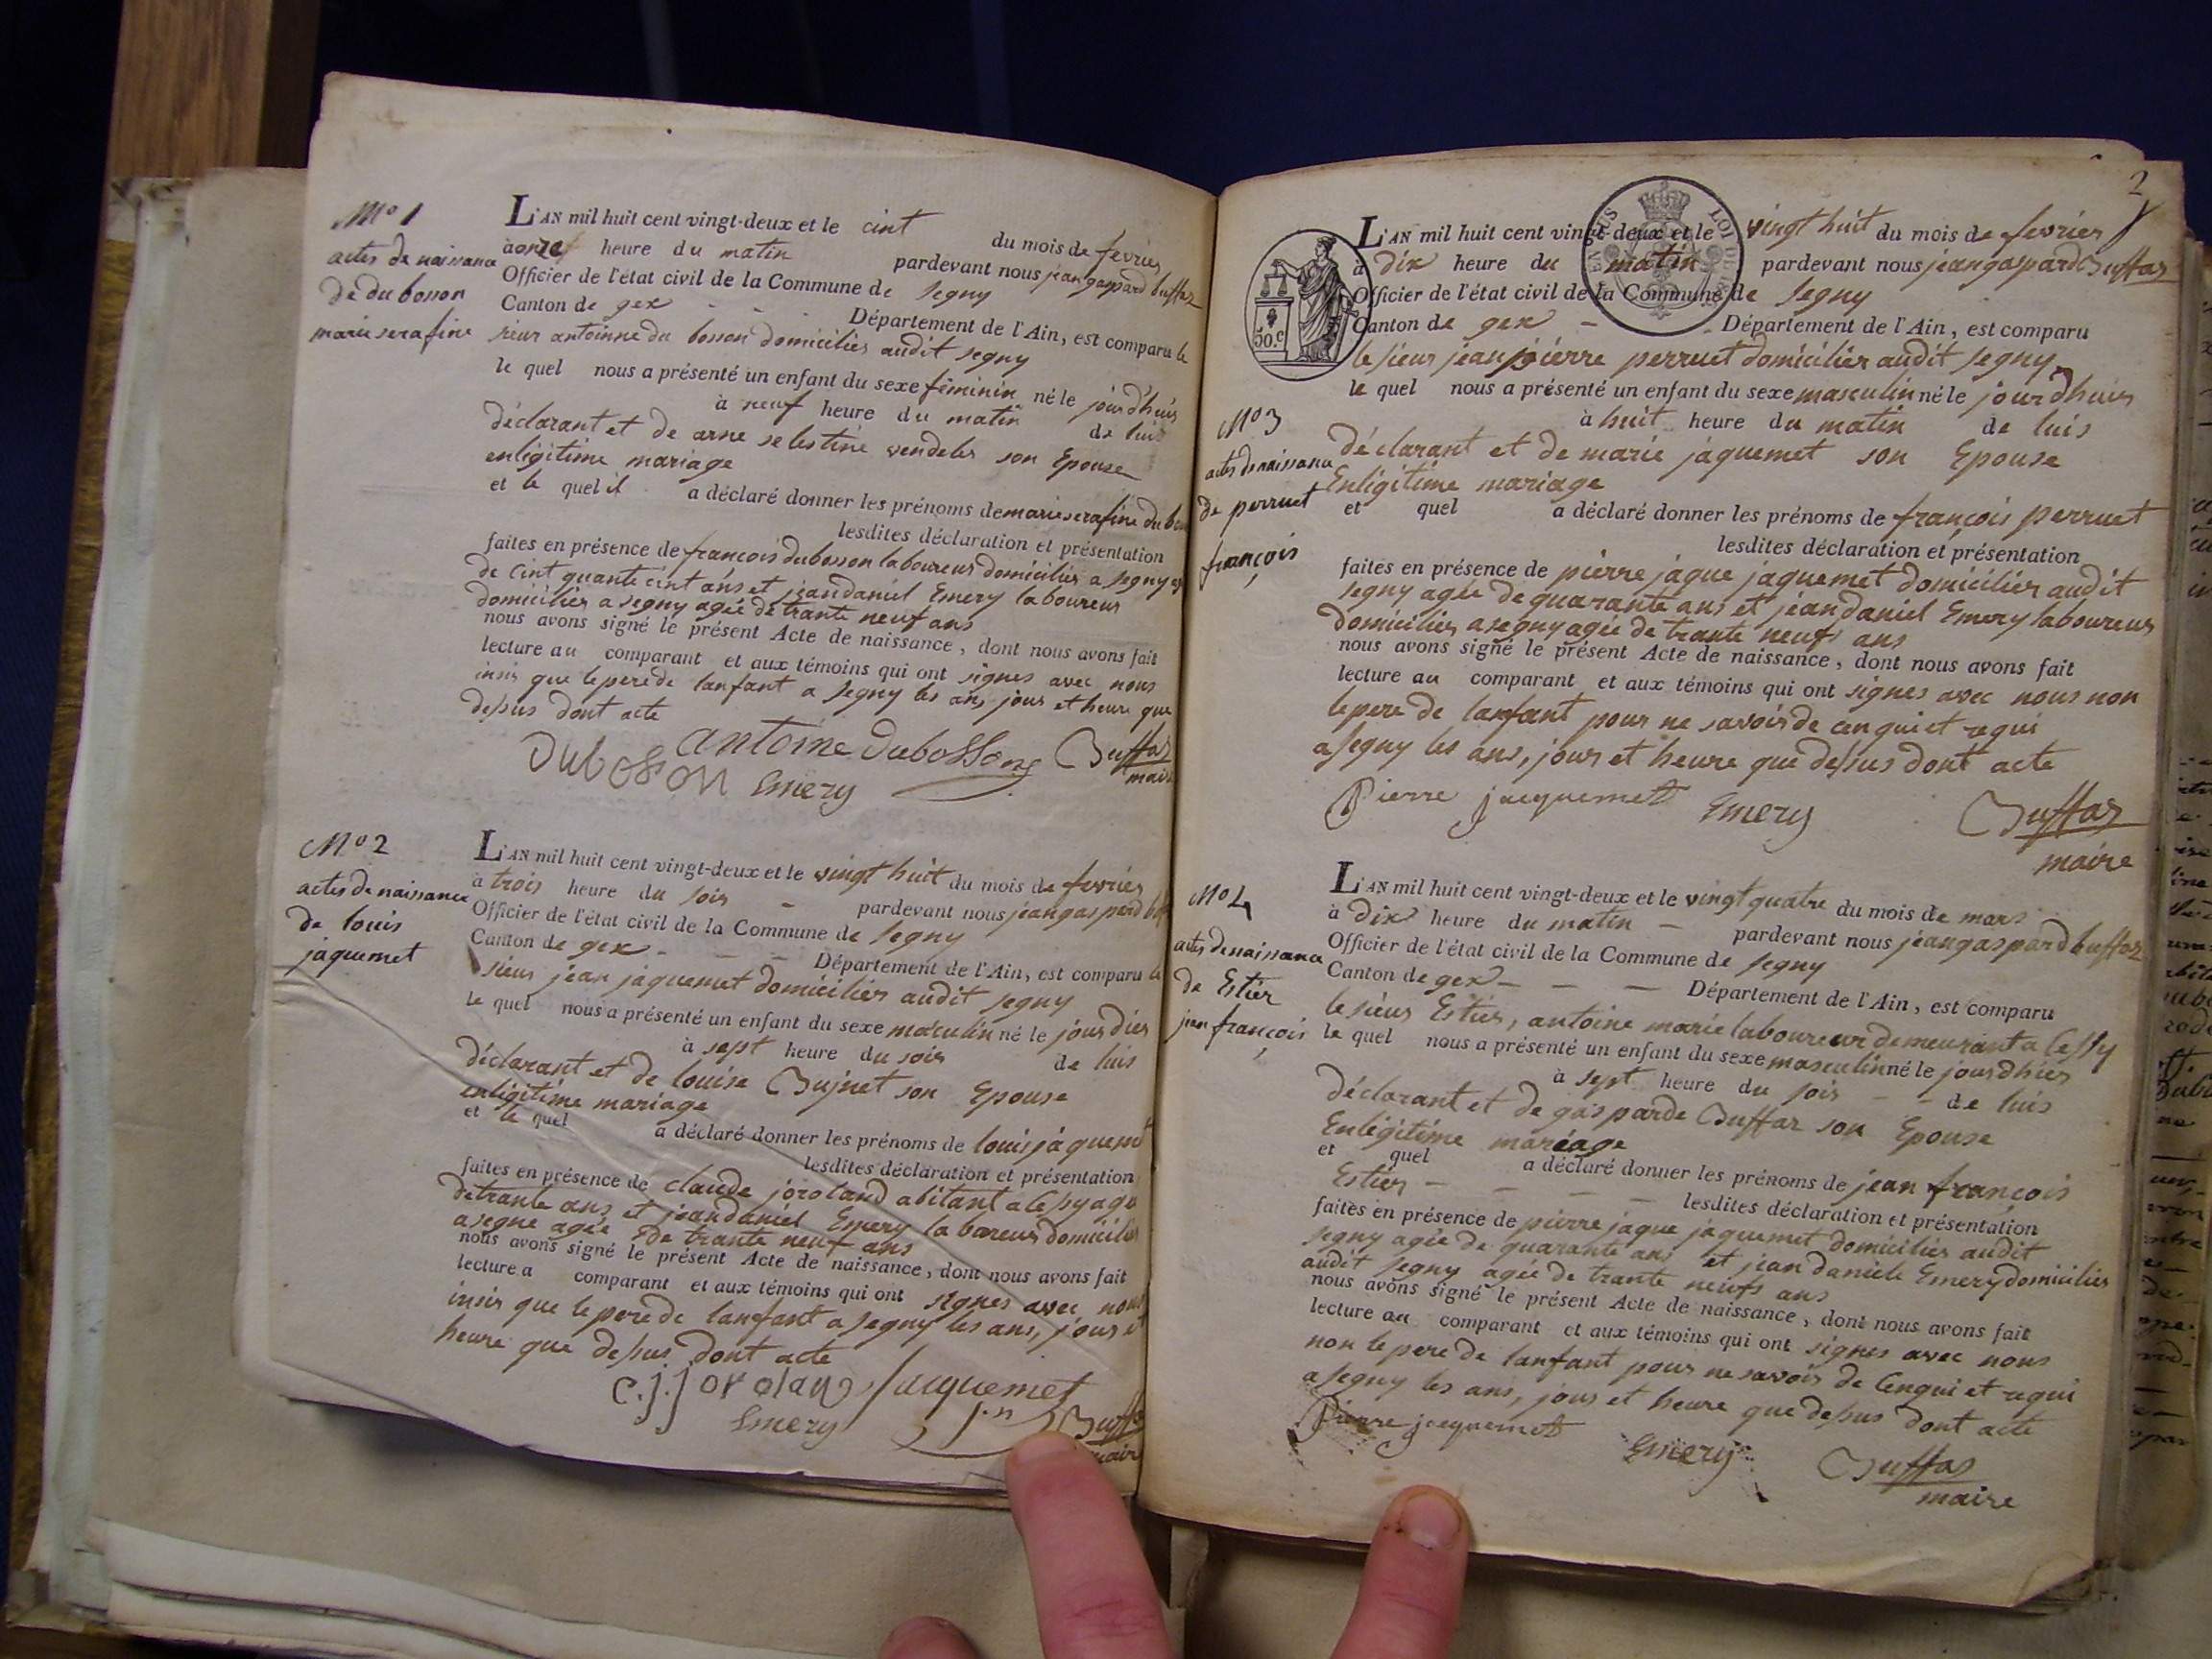 N° 1
actes de naissance
de du bosson
marie serafine
L'AN mil huit cent vingt-deux et le cint du mois de fevrier
à onze heure du matin pardevant nous jean gaspard buffaz
Officier de l'état civil de la Commune de segny
Canton de gex - - Département de l'Ain, est comparu le
sieur antoinne du bosson domicilier audit segny
le quel nous a présenté un enfant du sexe féminin né le jourdhuis
à neuf heure du matin de luis
déclarant et de anne selestine vendeles son Epouse
enligitime mariage
et le quel il a déclaré donner les prénoms de marie serafine du bo
lesdites déclaration et présentation
faites en présence de francois dubosson laboureur domicilier a segny ag
de cint quante cint ans et jean daniel Emery laboureur
domicilier a segny agée de trante neuf ans
nous avons signé le présent Acte de naissance, dont nous avons fait
lecture au comparant et aux témoins qui ont signes avec nous
insis que le pere de lanfant a segny les ans, jours et heure que
desus dont acte
antoine dubosson Buffaz
Dubosson Emery maire
N° 2
actes de naissance
de louis
jaquemet
L'AN mil huit cent vingt-deux et le vingt huit du mois de fevrier
à trois heure du soir - pardevant nous jean gaspard buf
Officier de l'état civil de la Commune de segny
Canton de gex - - - Département de l'Ain, est comparu le
sieur jean jaquemet domicilier audit segny
le quel nous a présenté un enfant du sexe masculin né le jour dier
à sept heure du soir de luis
déclarant et de louise Bujnet son Epouse
enligitime mariage
et le quel a déclaré donner les prénoms de louis jaquemet
lesdites déclaration et présentation
faites en présence de claude joroland abitant a Cessy agé
de trante ans et jean daniel Emery laboreur domicilier
a segne agée de trante neuf ans
nous avons signé le présent Acte de naissance, dont nous avons fait
lecture a comparant et aux témoins qui ont signes avec nous
insis que le pere de lanfant a segny les ans, jours et
heure que desus dont acte
c.j. jorolan Jacquemet
Emery j.n Buffaz
maire
2
5o.c
L'AN mil huit cent vingt-deux et le vingt huit du mois de fevrier
à dix heure du matin pardevant nous jean gaspard Buffaz
Officier de l'état civil de la Commune de segny
Canton de gex - - Département de l'Ain, est comparu
le sieur jean pierre perruet domicilier audit segny
le quel nous a présenté un enfant du sexe masculin né le jour dhuis
à huit heure du matin de luis
déclarant et de marie jaquemet son Epouse
Enligitime mariage
et quel a déclaré donner les prénoms de françois perruet
lesdites déclaration et présentation
N° 3
actes de naissance
de perruet
françois
faites en présence de pierre jaque jaquemet domicilier audit
segny agée de quarante ans et jean daniel Emery laboureur
domicilier a segny agée de trante neufs ans
nous avons signé le présent Acte de naissance, dont nous avons fait
lecture au comparant et aux témoins qui ont signes avec nous non
le pere de lanfant pour ne savoir de cenquiet requi
a segny les ans, jours et heure que desus dont acte
Pierre jacquemet Emery Buffaz
maire
N° 4
actes de naissance
de Estier
jean françois
L'AN mil huit cent vingt-deux et le vingt quatre du mois de mars
à dix heure du matin - pardevant nous jean gaspard buffaz
Officier de l'état civil de la Commune de segny
Canton de gex - - - Département de l'Ain, est comparu
le sieur Estier, antoine marie laboureur demeurant a Cessy
le quel nous a présenté un enfant du sexe masculin né le jour dhier
à sept heure du soir - - de luis
déclarant et de gasparde Buffaz son Epouse
Enlégitime mariage
et quel a déclaré donner les prénoms de jean françois
Estier - - - - lesdites déclaration et présentation
faites en présence de pierre jaque jaquemet domicilier audit
segny agée de quarante ans et jean daniele Emery domicilier
audit segny agée de trante neufs ans
nous avons signé le présent Acte de naissance, dont nous avons fait
lecture au comparant et aux témoins qui ont signes avec nous
non le pere de lanfant pour ne savoir de Cenqui et requi
a segny les ans, jours et heure que desus dont acte
Pierre jacquemet Emery Buffaz
maire